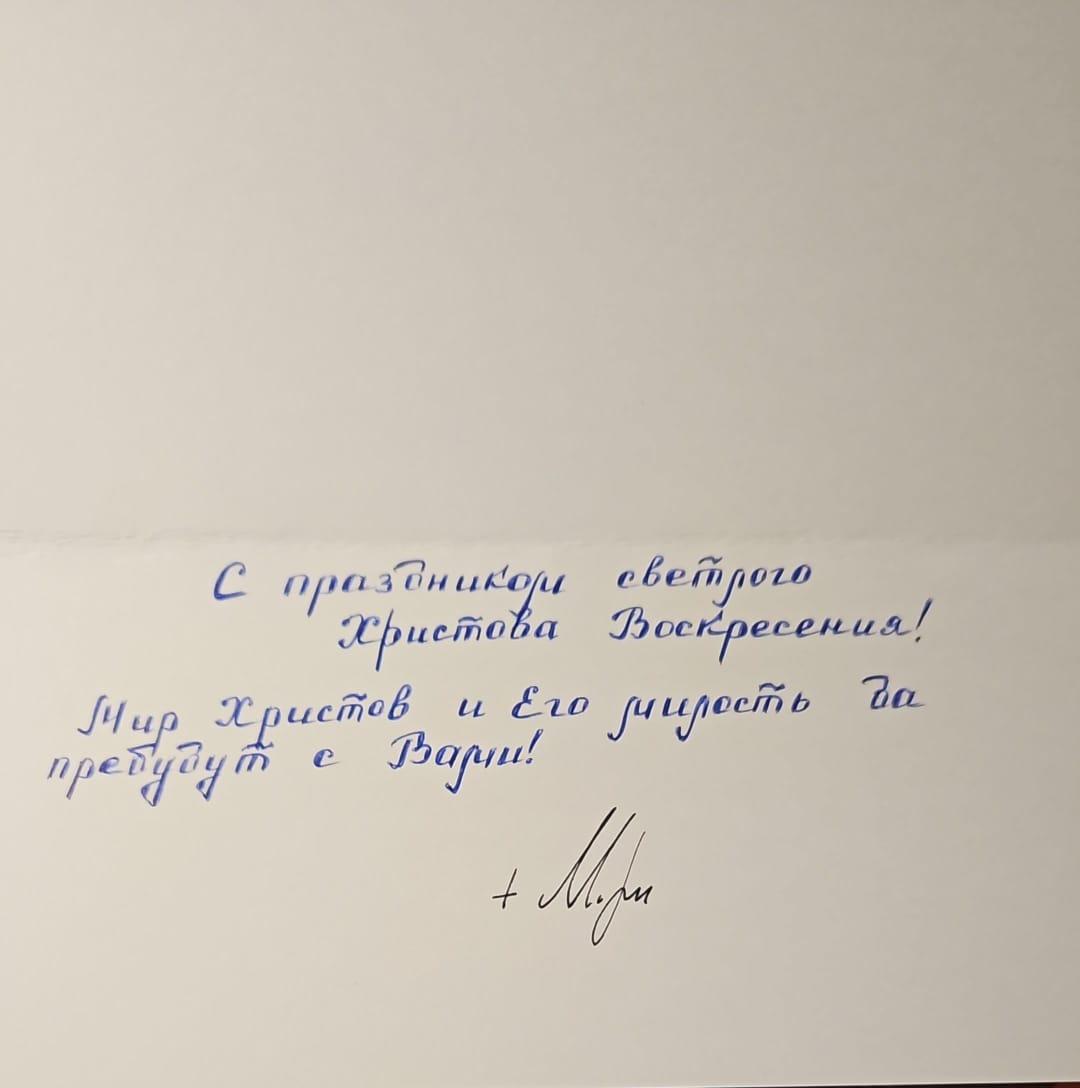 С праздником светлого
Христова Воскресения!
Мир Христов и Его милость да
пребудут с Вами!
+ М.